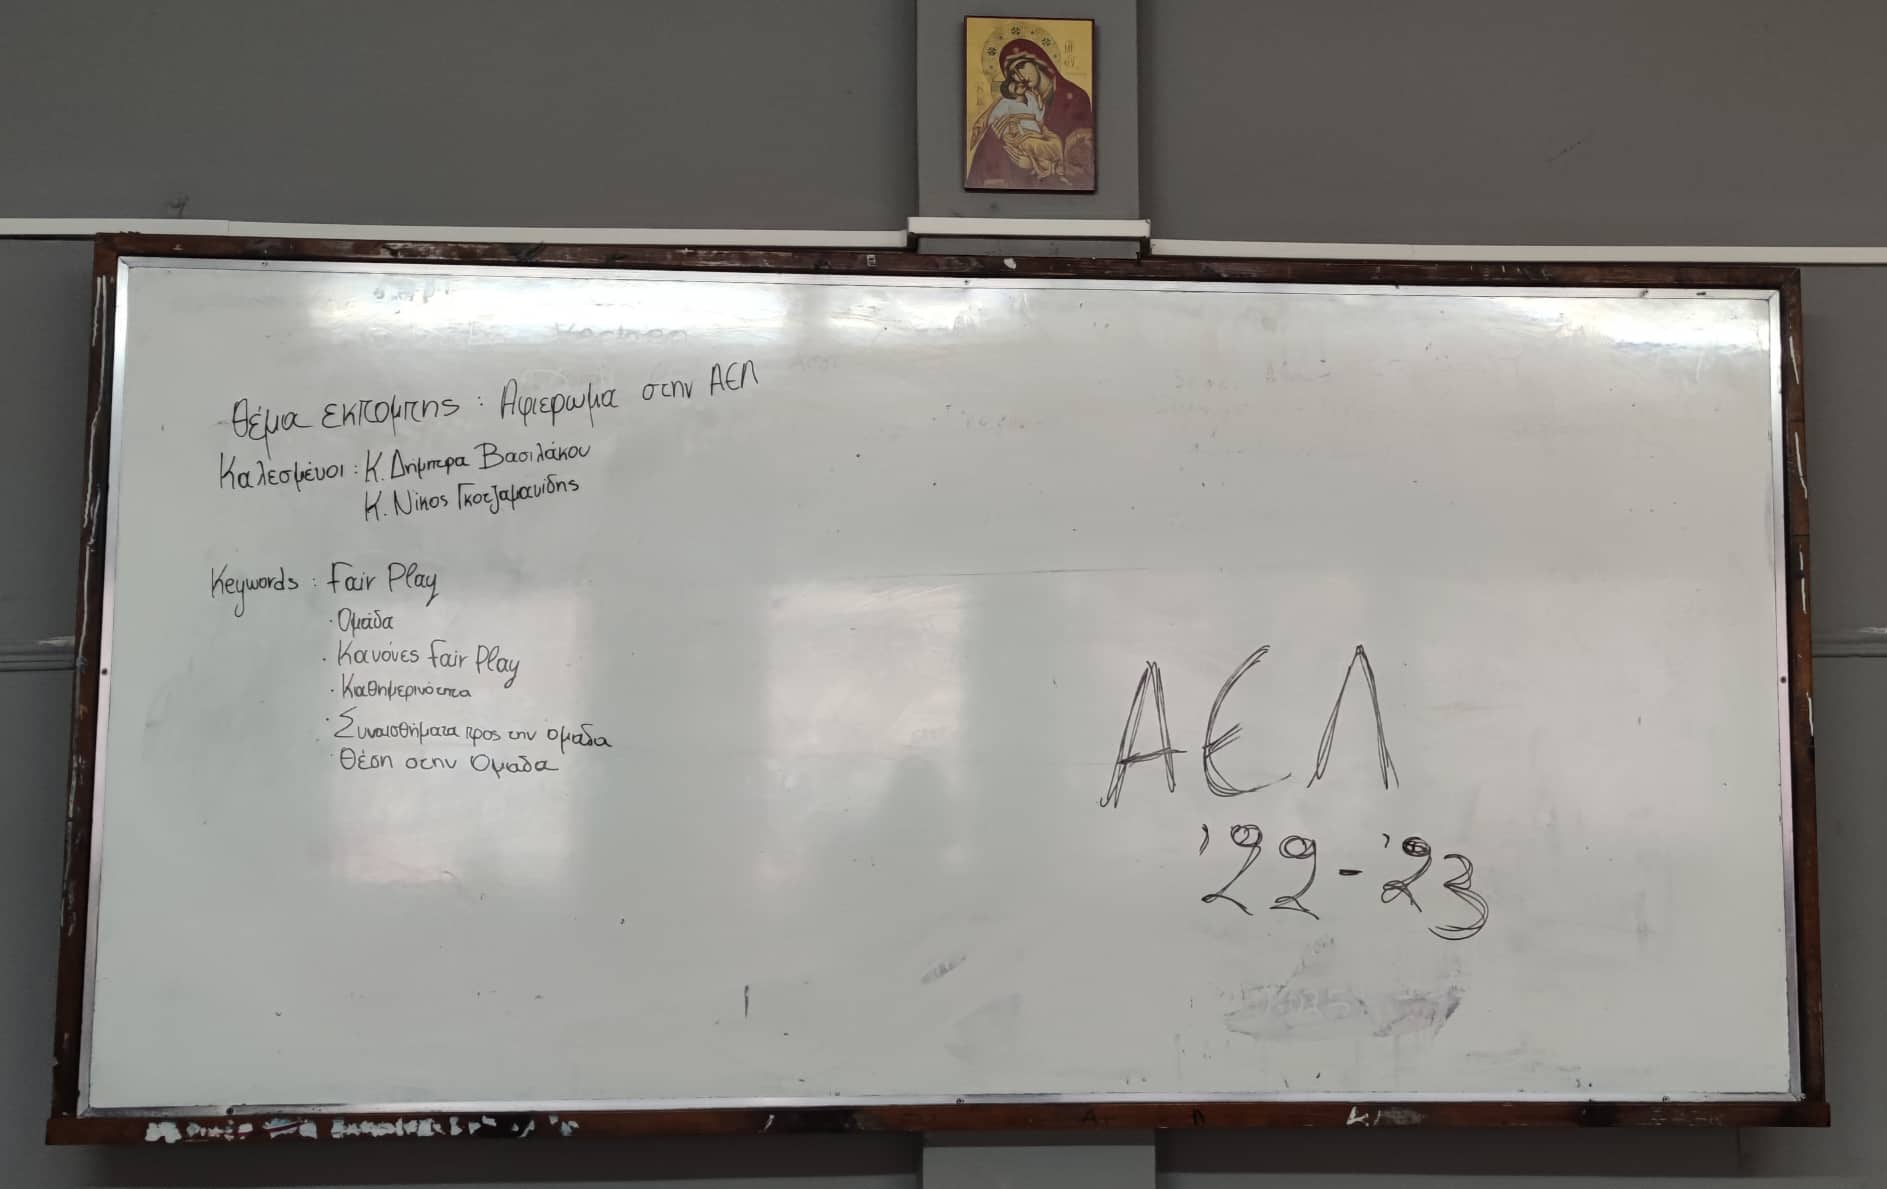 Θέμα εκπομπης : Αφιερωμα στην ΑΕΛ
Καλεσμένοι : Κ. Δημητρα Βασιλάκου
Κ. Νίκος Γκοτζαμανίδης
Keywords : Fair Play
· Ομάδα
· Κανόνες Fair Play
· Καθημερινότητα
· Συναισθήματα προς την ομαδα
· Θέση στην Ομαδα
ΑΕΛ
'22-'23